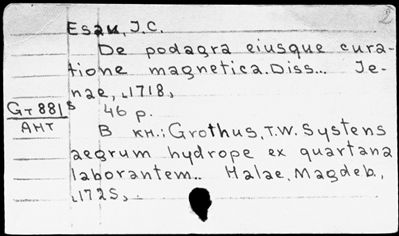 2
Esau, J.C.
De podagra eiusque cura-
tione magnetica. Diss... Je-
nae, ⌊1718⌋
Gт 881⁵
АНТ
46 p.
В кн.: Grothus, T.W. Systens
aegrum hydrope ex quartana
laborantem.. Halae, Magdeb.,
⌊1725⌋